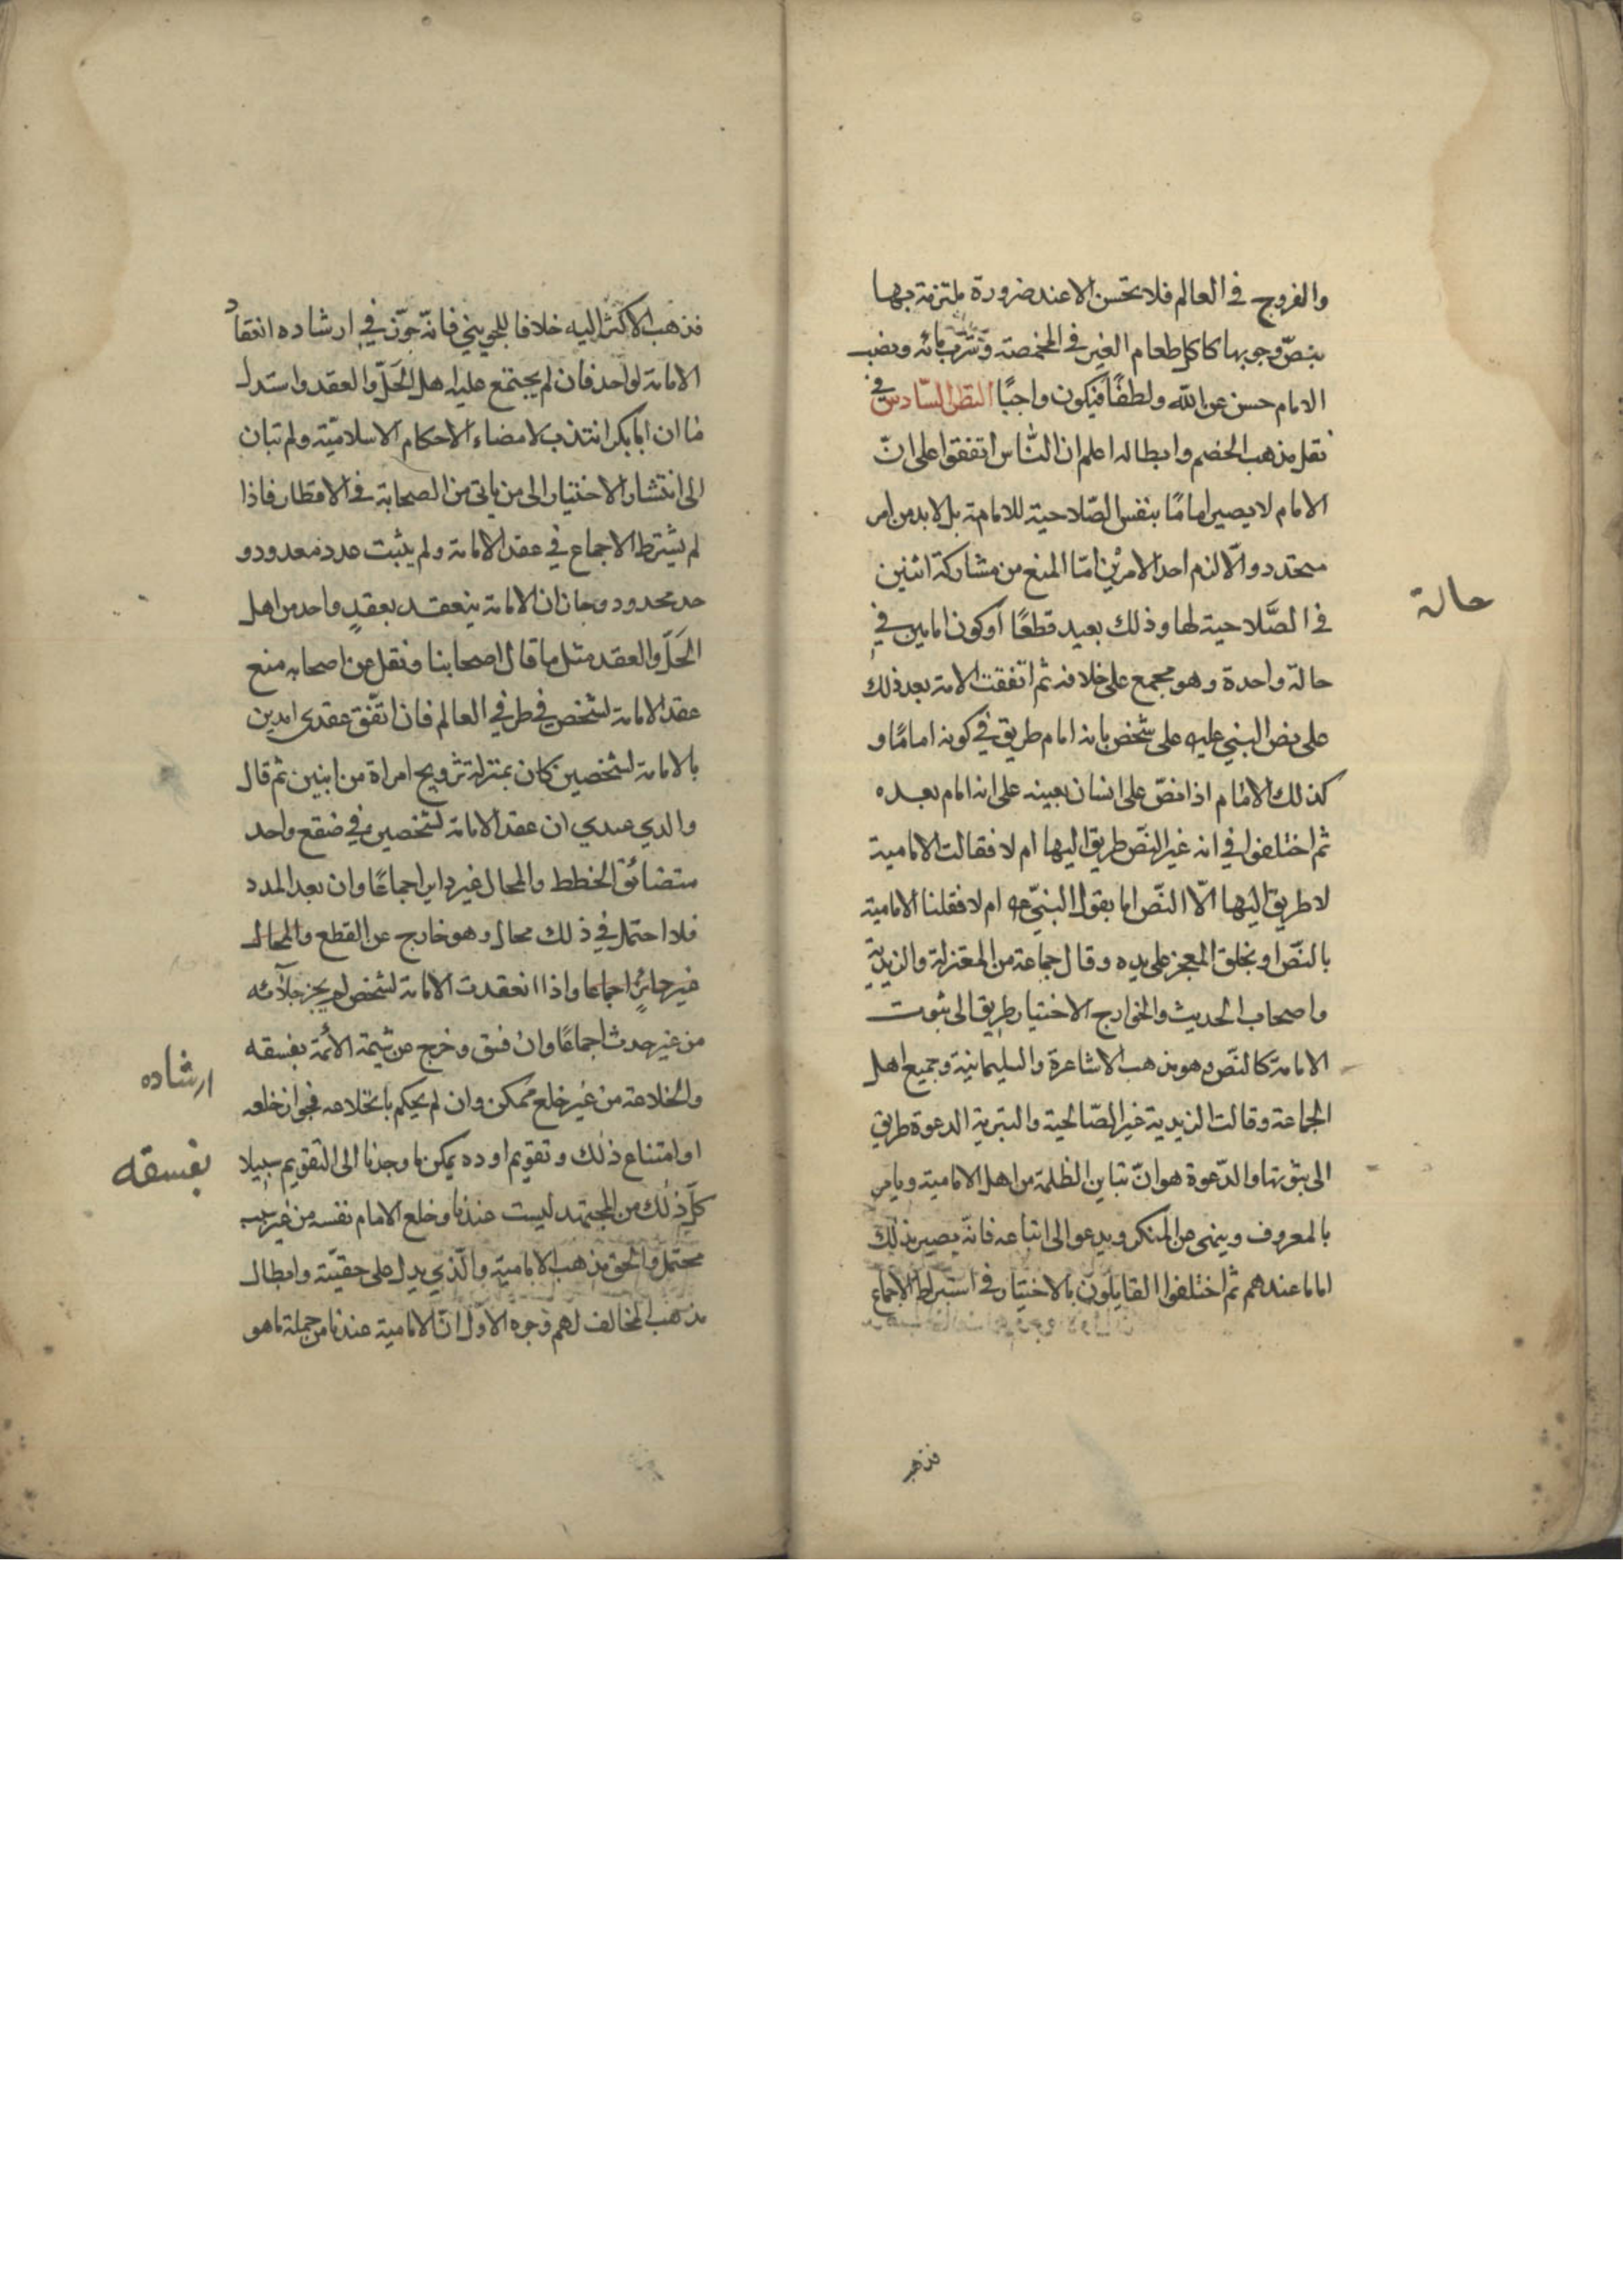 والفروج في العالم فلا يحسن الا عند ضرورة ملتزمة بها
بنص وجوبها كاكل طعام الغير في المخمصة وشرب مائه ونصب
الامام حسن عن الله ولطفًا فيكون واجبًا النظر السّادس في
نقل مذهب الخصم وابطاله اعلم ان النّاس اتفقوا على انّ
الامام لا يصير امامًا بنفس الصّلاحية للامامة بل لا بد من امر
متجدد والّا لزم احد الامرين امّا المنع من مشاركة اثنين
في الصَّلاحية لها وذلك بعيد قطعًا او كون امامين في
حالة واحدة وهو مجمع على خلافه ثم اتفقت الامة بعد ذلك
على نص النبي عليه على شخص بانه امام طريق في كونه امامًا و
كذلك الامام اذا نصّ على انسان بعينه على انه امام بعده
ثم اختلفوا في انه غير النّص طريق اليها ام لا فقالت الامامية
لا طريق اليها الّا النّص اما بقول النبيّ ام لا فقلنا الامامية
بالنّص او بخلق المعجز على يده وقال جماعة من المعتزلة والزيدية
واصحاب الحديث والخوارج الاختيار طريق الى ثبوت
الامامة كالنّص وهو مذهب الاشاعرة والسليمانية وجميع اهل
الجماعة وقالت الزيدية غير الصّالحية والبترية الدعوة طريق
الى ثبوتها والدّعوة هو انّ تباين الظلمة من اهل الامامية ويامر
بالمعروف وينهى عن المنكر ويدعو الى اتباعه فانّه يصير بذلك
اماما عندهم ثم اختلفوا القايلون بالاختيار في اشتراط الاجماع
فذهب
حالة
فذهب الاكثر اليه خلافا للجويني فانّه جوّز في ارشاده انعقاد
الامامة لواحد فان لم يجتمع عليه اهل الحَلّ والعقد واستدل
ان ابابكر انتدب لامضاء الاحكام الاسلاميّة ولم تبان
الى انتشار الاختيار الى من ياتي من الصحابة في الاقطار فاذا
لم يشترط الاجماع في عقد الامامة ولم يثبت عدد معدود و
حد محدود وجاز ان الامامة ينعقد بعقدٍ واحد من اهل
الحَلّ والعقد مثل ما قال اصحابنا ونقل عن اصحابه منع
عقد الامامة لشخص في طرفي العالم فان اتّفق عقدى
بالامامة لشخصين كان بمنزلة تزويج امراة من اثنين ثم قال
والذي عندي ان عقد الامامة لشخصين في صقع واحد
متضائق الخطط والمجال غير اجماعًا وان بعد المدد
فلا احتمل في ذلك مجال وهو خارج عن القطع والمجال
غير جائزٍ اجماعا واذا انعقدت الامامة لشخص لم يجز
من غير حدث اجماعًا وان فسق وخرج عن شيمة الائمة بفسقه
والخلاعة من غير خلع ممكن وان لم يحكم بانخلاعه فجواز خلعه
او امتناع ذلك وتقويم اوده يمكن ما وجدنا الى التقويم سبيلا
كلّ ذلك من المجتهد ليست عندنا وخلع الامام نفسه من غير سبب
محتمل والحق مذهب الاماميّة والّذي يدل على حقيّته وابطال
مذهب المخالف لهم وجوه الاوّل انّ الامامية عندنا من جملة ما هو
ارشاده
بفسقه